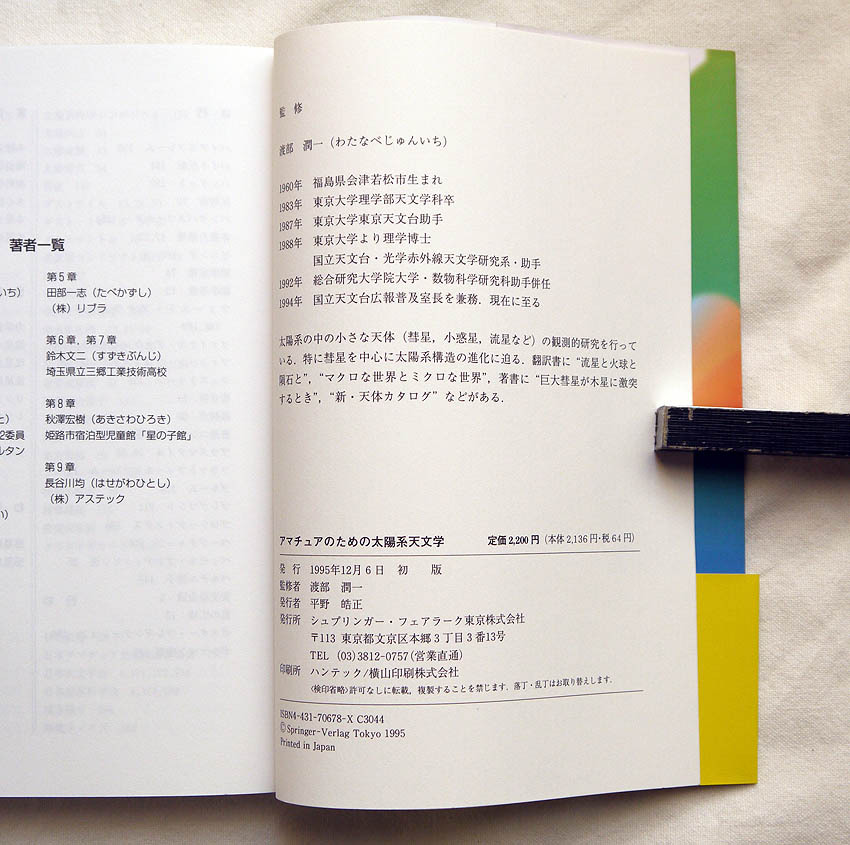 著者一覧
いち）
と）
2委員
ルタン
い）
第5章
田部一志（たべかずし）
（株）リブラ
第6章，第7章
鈴木文二（すずきぶんじ）
埼玉県立三郷工業技術高校
第8章
秋澤宏樹（あきさわひろき）
姫路市宿泊型児童館「星の子館」
第9章
長谷川均（はせがわひとし）
（株）アステック
監 修
渡部 潤一（わたなべじゅんいち）
1960年 福島県会津若松市生まれ
1983年 東京大学理学部天文学科卒
1987年 東京大学東京天文台助手
1988年 東京大学より理学博士
国立天文台・光学赤外線天文学研究系・助手
1992年 総合研究大学院大学・数物科学研究科助手併任
1994年 国立天文台広報普及室長を兼務．現在に至る
太陽系の中の小さな天体（彗星，小惑星，流星など）の観測的研究を行って
いる．特に彗星を中心に太陽系構造の進化に迫る．翻訳書に“流星と火球と
隕石と”，“マクロな世界とミクロな世界”，著書に“巨大彗星が木星に激突
するとき”，“新・天体カタログ” などがある．
アマチュアのための太陽系天文学 定価2,200円（本体2,136円・税64円）
発 行 1995年12月6日 初 版
監修者 渡部 潤一
発行者 平野 皓正
発行所 シュプリンガー・フェアラーク東京株式会社
〒113 東京都文京区本郷3丁目3番13号
TEL (03)3812-0757(営業直通)
印刷所 ハンテック/横山印刷株式会社
〈検印省略〉許可なしに転載，複製することを禁じます．落丁・乱丁はお取り替えします．
ISBN4-431-70678-X C3044
©Springer-Verlag Tokyo 1995
Printed in Japan